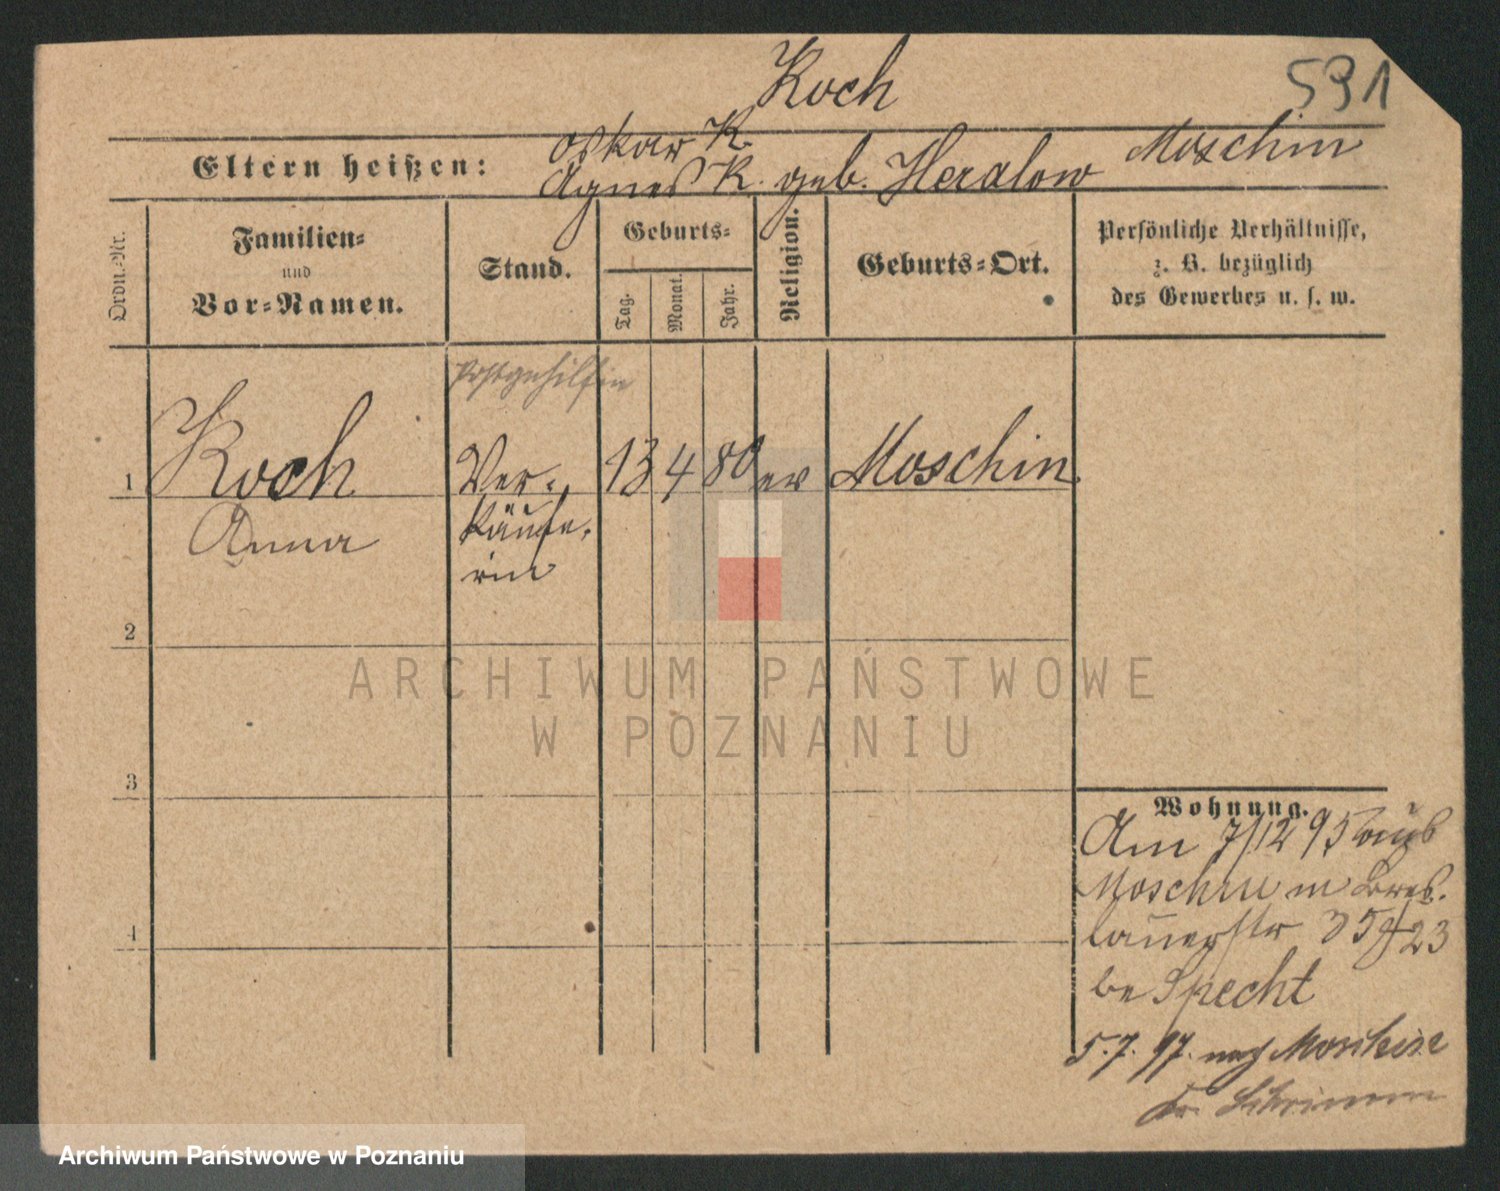 Koch
591
Oskar K. Moschin
Eltern heißen:
Agnes K. geb. Heralow
Ordn.-Nr.
Familien-
und
Vor-Namen.
Stand.
Geburts-
Tag.
Monat.
Jahr.
Religion.
Geburts-Ort.
Persönliche Verhältnisse,
z. B. bezüglich
des Gewerbes u. s. w.
Postgehilfin
1 Koch Ver- 13 4 80 ev Moschin
Anna käufe-
rin
2
3
4
ARCHIWUM PAŃSTWOWE
W POZNANIU
Wohnung.
Am 7/12 95 aus
Moschin in Bres-
lauerstr 35 23
be Specht
5.7.97. nach Moschin
Kr. Schrimm
Archiwum Państwowe w Poznaniu